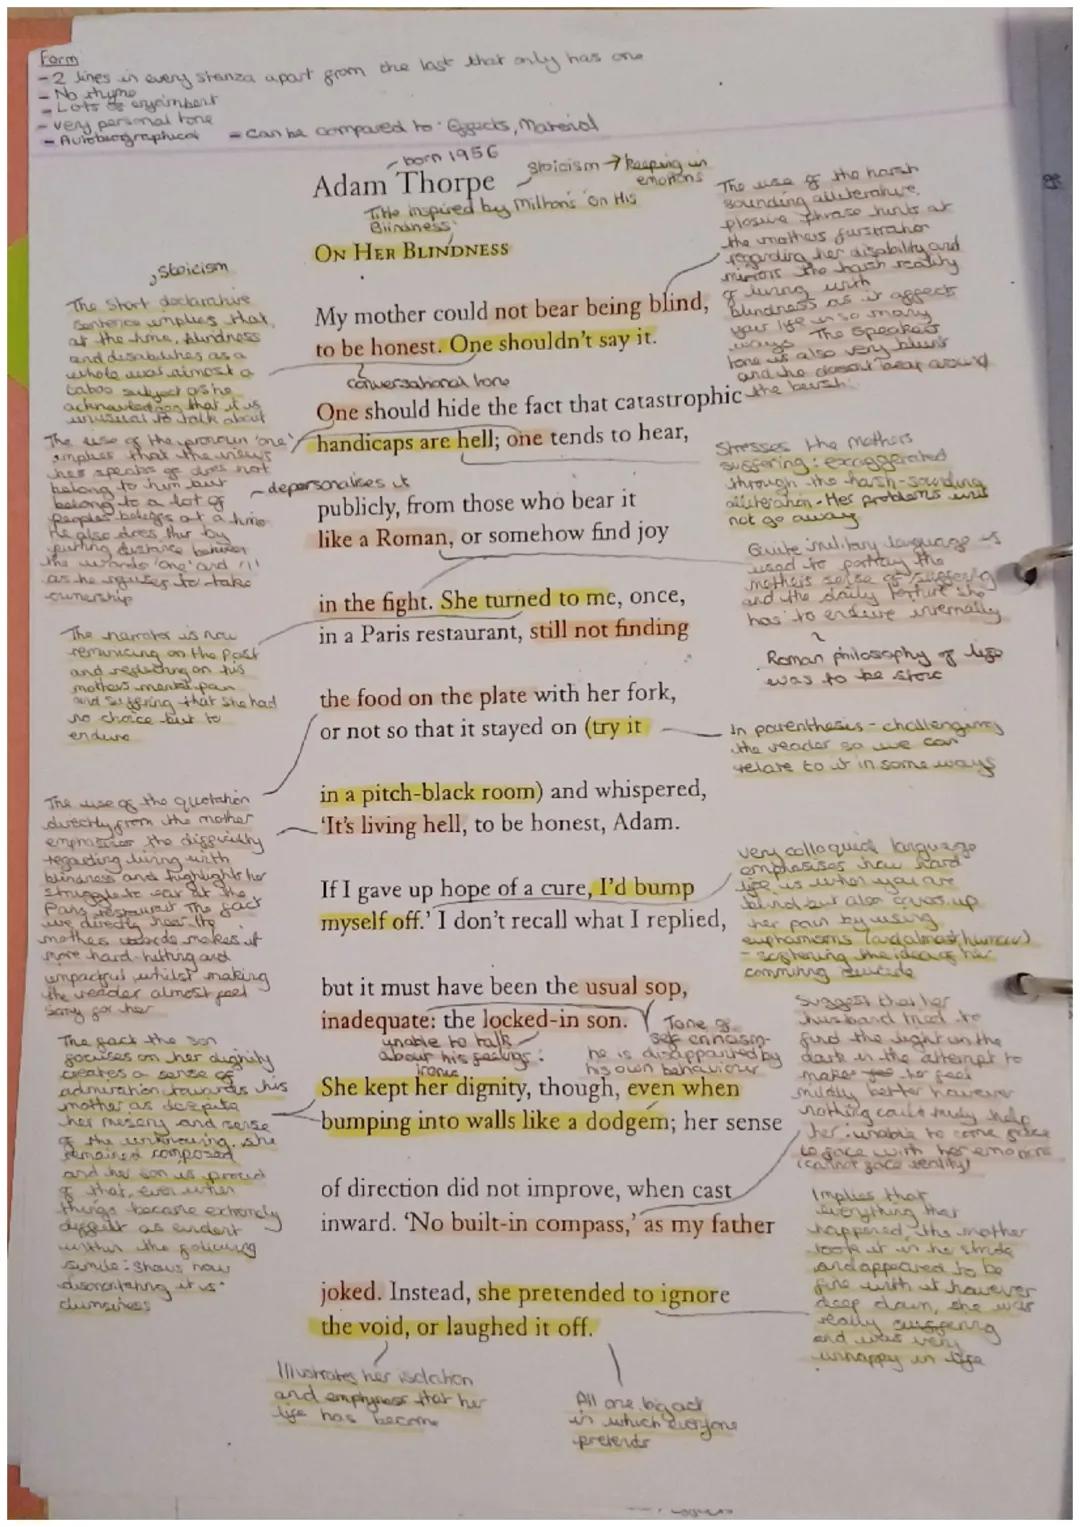 Form
- 2 lines in every stanza apart from the last that only has one
- No rhyme
- Lots of enjambent
- very personal tone
- Autobiographical - Can be compared to: Effects, Material
born 1956
Adam Thorpe
Stoicism → keeping in
emotions
Title inspired by Milton's 'On His
Blindness'
ON HER BLINDNESS
The use of the harsh
sounding alliterative,
plosive phrase hints at
the mothers
regarding her disability and
mirrors the harsh reality
of living with
blindness as it affects
your life in so many
ways. The speakers
tone is also very blunt
and he doesn't beat around
the bush.
stoicism
The short declarative
sentence implies that,
at the time, blindness
and disabilities as a
whole was almost a
taboo subject as he
acknowledges that it is
unusual to talk about
My mother could not bear being blind,
to be honest. One shouldn't say it.
conversational tone
One should hide the fact that catastrophic
handicaps are hell; one tends to hear,
The use of the pronoun 'one'
implies that the views
he speaks of does not
belong to him but
belong to a lot of
peoples beliefs at a time
He also does this by
putting distance between
the words 'one' and 'I'
as he refuses to take
ownership
Stresses the mothers
suffering: exaggerated
through the harsh-sounding
alliteration - Her problems will
not go away
depersonalises it
publicly, from those who bear it
like a Roman, or somehow find joy
Quite military language is
used to portray the
mothers sense of suffering
and the daily torture she
has to endure internally
Roman philosophy of life
was to be stoic
in the fight. She turned to me, once,
in a Paris restaurant, still not finding
The narrator is now
reminiscing on the past
and reflecting on his
mothers mental pain
and suffering that she had
no choice but to
endure
the food on the plate with her fork,
or not so that it stayed on (try it
In parenthesis - challenging
the reader so we can
relate to it in some ways
in a pitch-black room) and whispered,
'It's living hell, to be honest, Adam.
The use of the quotation
directly from the mother
emphasises the difficulty
regarding living with
blindness and highlights her
struggle to eat at the
Paris restaurant. The fact
we directly hear the
mothers words makes it
more hard-hitting and
impactful whilst making
the reader almost feel
sorry for her
If I gave up hope of a cure, I'd bump
myself off.' I don't recall what I replied,
Very colloquial language
emphasises how hard
life is when you are
blind but also covers up
her pain by using
euphamisms (and almost humour)
- softening the idea of her
commiting suicide
but it must have been the usual sop,
inadequate: the locked-in son.
unable to talk
about his feelings:
ironic
Tone of
self criticism -
he is disappointed by
his own behaviour
Suggest that her
husband tried to
find the light in the
dark in the attempt to
make her feel
mildly better however
nothing could truly help
her: unable to come face
to face with her emotions
(cannot face reality)
The fact the son
focuses on her dignity
creates a sense of
admiration towards his
mother as despite
her misery and sense
of the unknowing, she
remained composed
and her son is proud
of that, even when
things became extremely
difficult as evident
within the following
simile: shows how
disorientating it is.
clumsiness
She kept her dignity, though, even when
bumping into walls like a dodgem; her sense
of direction did not improve, when cast
inward. 'No built-in compass,' as my father
Implies that
everything that
happened, the mother
took it in her stride
and appeared to be
fine with it however
deep down, she was
really suffering
and was very
unhappy in life
joked. Instead, she pretended to ignore
the void, or laughed it off.
Illustrates her isolation
and emptyness that her
life has become
All one big act
in which everyone
pretends